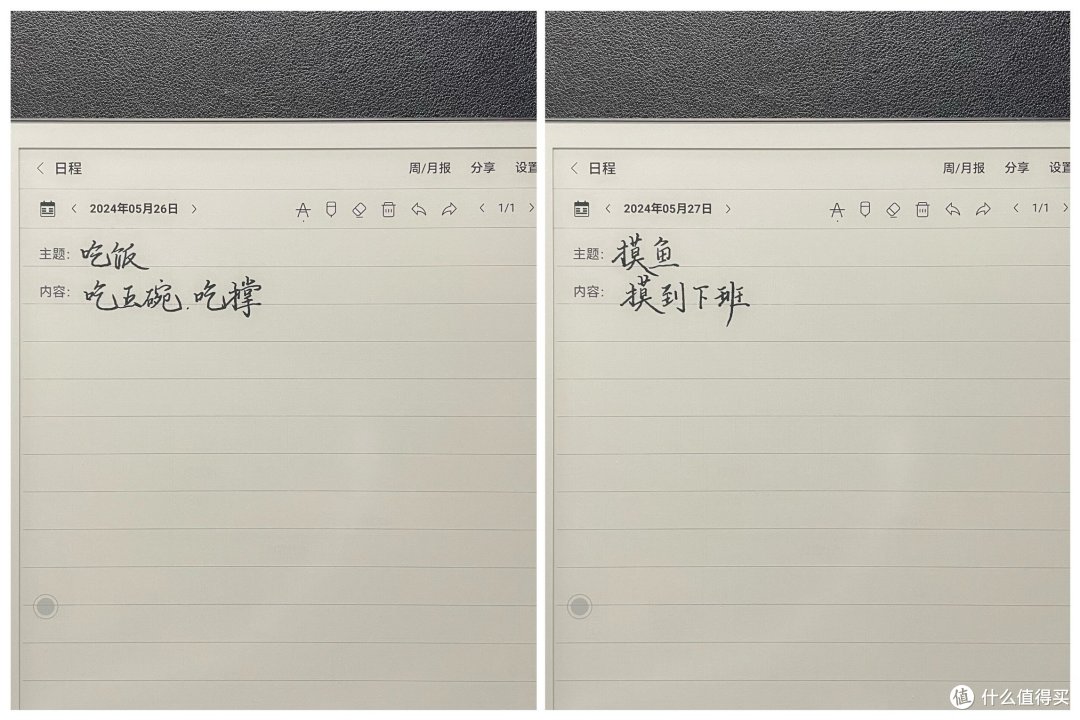 日程 周/月报 分享 设置
2024年05月26日 1/1
主题: 吃饭
内容: 吃五碗.吃撑
日程 周/月报 分享 设置
2024年05月27日 1/1
主题: 摸鱼
内容: 摸到下班
值 什么值得买